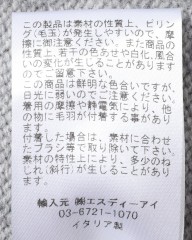 この製品は素材の性質上、ピリン
グ(毛玉)が発生しやすいので、摩
擦に御注意ください。また商品の
性質上、着用の色あせや白化、風合
いの変化が生じることがあります
のでご留意下さい。
この商品は鮮明な色合いですが、
日光に弱いのでご注意ください。
着用の摩擦や静電気により、他の
物にも毛羽が付着する事があり
ます。
付着した場合は、素材に合わせ
たブラシ等で取り除いて下さい。
素材の特性上により、多少のね
じれ(斜行)が生じることがありま
す。
輸入元 ㈱エスディーアイ
03-6721-1070
イタリア製